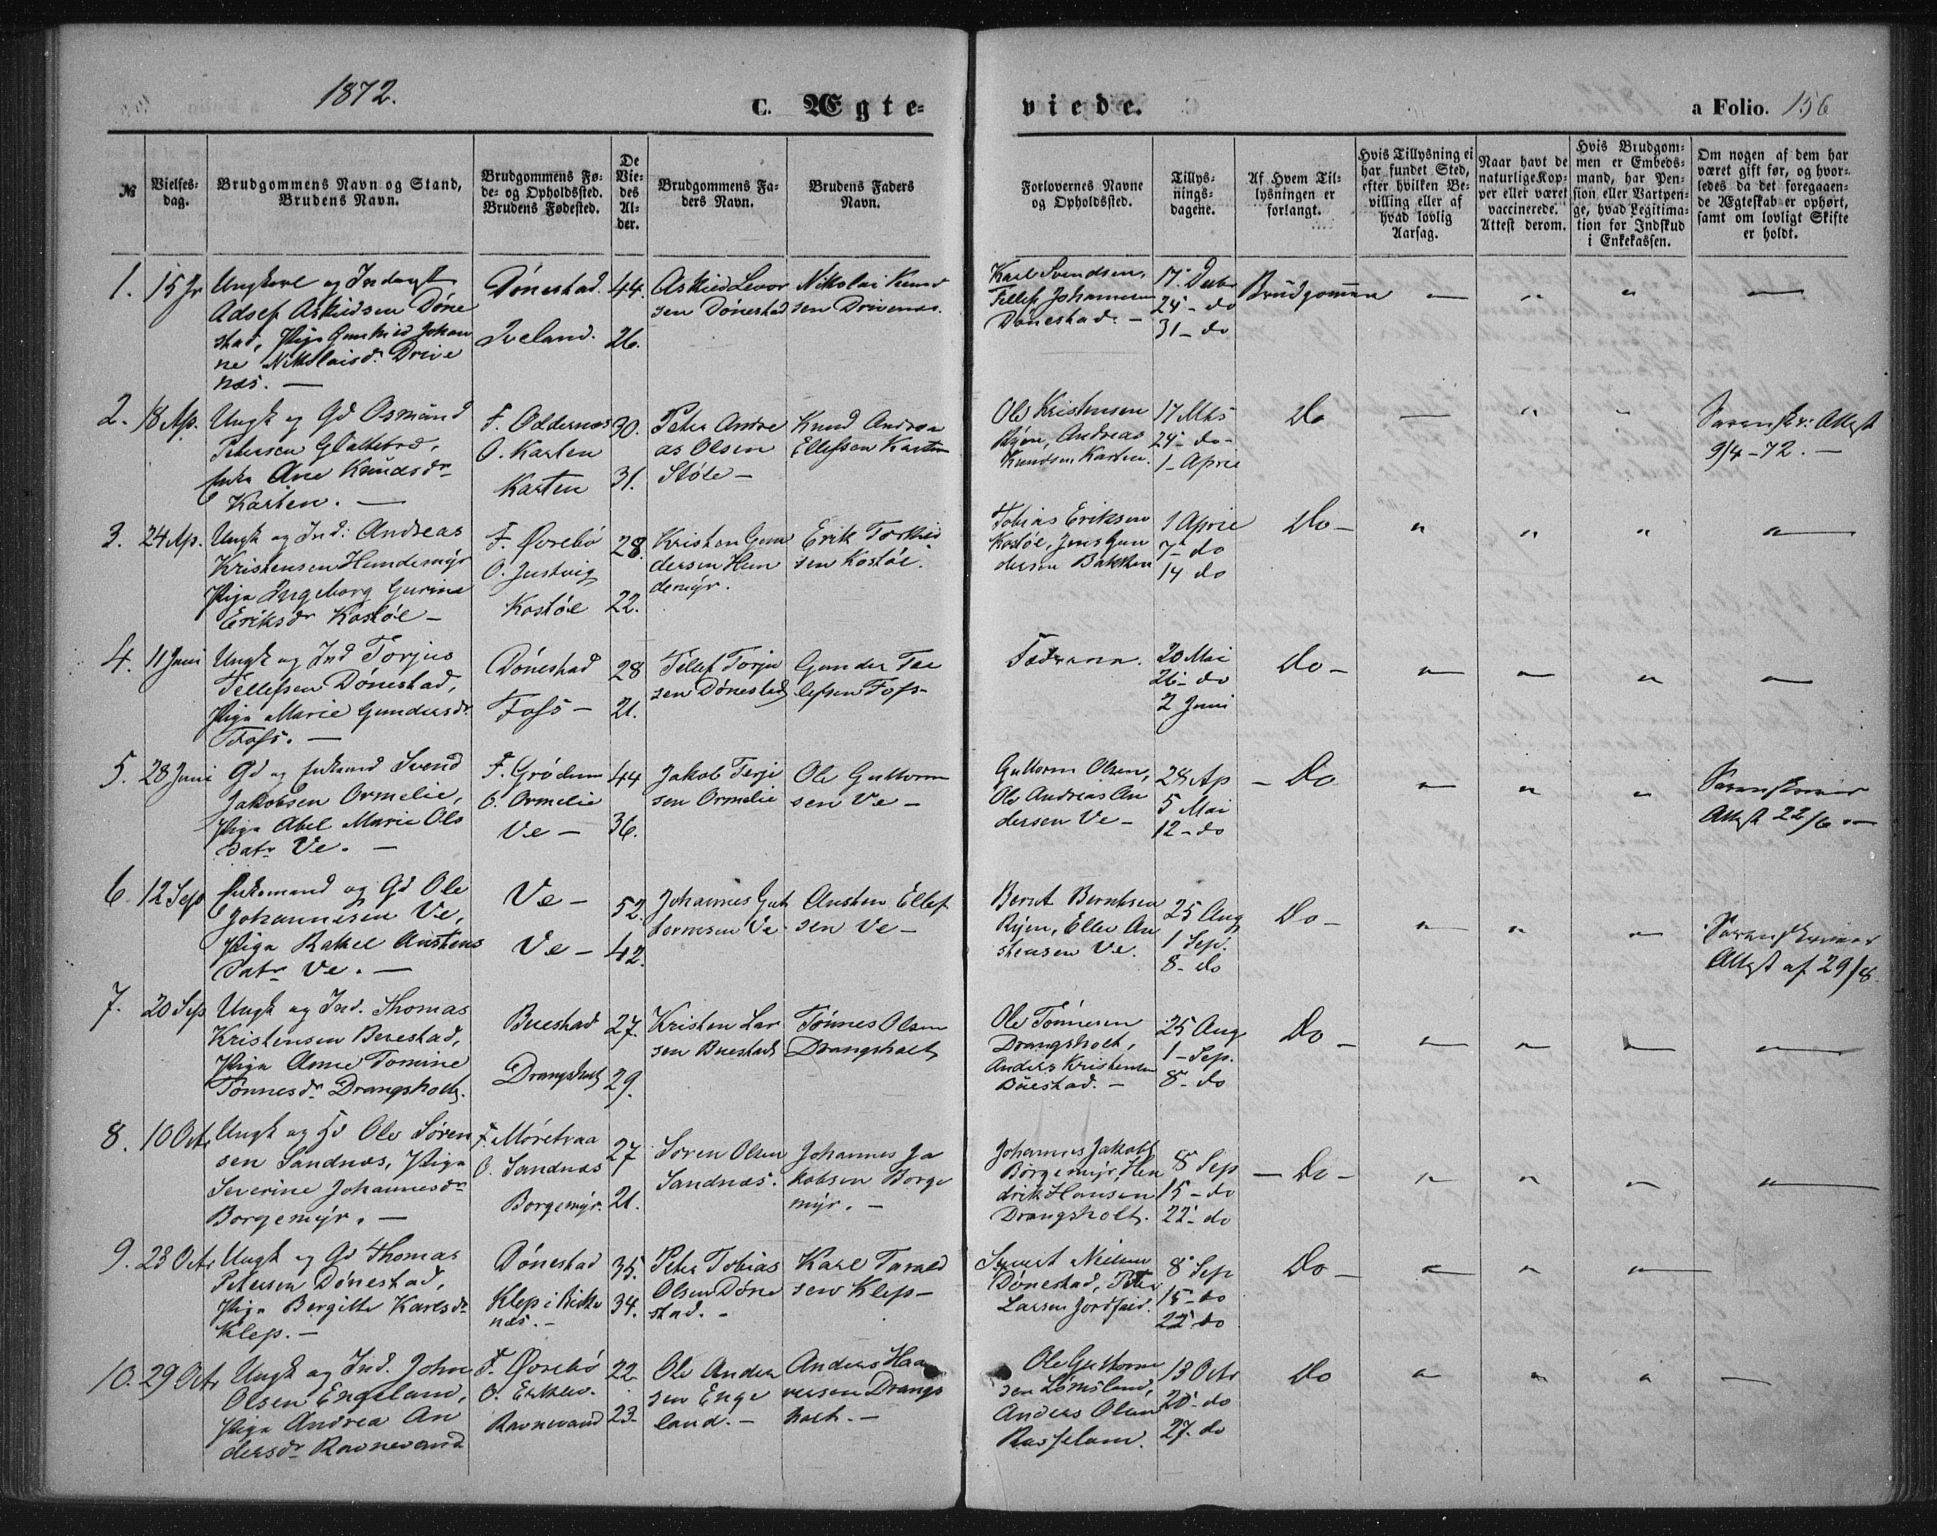 1872.
C. Ægte-
viede.
a Folio. 156
№
Vielses-
dag.
Brudgommens Navn og Stand,
Brudens Navn.
Brudgommens Fø-
de- og Opholdssted.
Brudens Fødested.
De
Vie-
des
Al-
der.
Brudgommens Fa-
ders Navn.
Brudens Faders
Navn.
Forlovernes Navne
og Opholdssted.
Tillys-
nings-
dagene.
Af Hvem Til-
lysningen er
forlangt.
Hvis Tillysning ei
har fundet Sted,
efter hvilken Be-
villing eller af
hvad lovlig
Aarsag.
Naar havt de
naturlige Kop-
per eller været
vaccinerede.
Attest derom.
Hvis Brudgom-
men er Embeds-
mand, har Pen-
sion eller Vartpen-
ge, hvad Legitima-
tion for Indskud
i Enkekassen.
Om nogen af dem har
været gift før, og hvor-
ledes da det foregaaen-
de Ægteskab er ophørt,
samt om lovligt Skifte
er holdt.
1. 15 Jr
Ungkarl og Inderst
Adsef Askildsen Døne
stad, Pige Gunhild Johan
ne Nikolaisdr. Drive
næs. —
Dønestad.
Iveland.
44.
26.
Askild Levor
sen Dønestad
Nikolai Knud
sen Drivenæs.
Karl Svendsen,
Tellef Johannesen
Dønestad. —
17. Decbr
24 - do
31 - do
Brudgommen
— " " —
2. 18 Ap.
Ungk og Gd Osmund
Petersen Glattebræ,
Enke Ane Knudsdr
Karten. —
F. Oddernæs
O. Karten
Karten
30.
31.
Peter Andre
as Olsen
Støle —
Knud Andrea
Ellefsen Karten
Ole Kristensen
Ryen, Andreas
Knudsen Karten.
17 Mts
24 - do -
1 - April
Do
— " "
Sorenskr: Attest
9/4 - 72. —
3. 24 Ap.
Ungk og Ind: Andreas
Kristensen Hundemyr
Pige Ingeborg Gurine
Eriksdr Kostøl —
F. Øvrebø
O. Justvig
Kostøl
28.
22.
Kristen Gun
dersen Hun
demyr.
Erik Torkild
sen Kostøl.
Tobias Eriksen
Kostøl, Jens Gun
dersen Bakken
1 April
7 - do
14 do
Do —
" " " —
4. 11 Juni
Ungk og Ind Torjus
Tellefsen Dønestad,
Pige Marie Gundersdr
Foss. —
Dønestad
Foss —
28
21.
Tellef Torju
sen Dønestad
Gunder Tel
lefsen Foss —
Fædrene.
20 Mai
26 - do
2 Juni
Do —
" " " "
5. 28 Juni
Gd og Enkemd Svend
Jakobsen Ormelie,
Pige Abel Marie Ols
datr Ve. —
F. Grødum
O. Ormelie
Ve —
44
36.
Jakob Terje
sen Ormelie
Ole Guttorm
sen Ve —
Guttorm Olsen,
Ole Andreas An
dersen Ve —
28 Ap
5 Mai
12 - do
— Do
" " "
Sorenskriver
Attest 22/6 —
6. 12 Sep
Enkemand og Gd Ole
Johannesen Ve,
Pige Rakel Austens
datr Ve. —
Ve —
Ve —
52.
42.
Johannes Gut
tormsen Ve
Austen Ellef
sen Ve —
Bernt Berntsen
Ryen, Ellev Au
stensen Ve.
25 Aug
1 Sep.
8 - do
Do —
" " "
Sorenskriver
Attest af 29/8.
7. 20 Sep
Ungk og Ind. Thomas
Kristensen Buestad,
Pige Anne Tomine
Tønnesdr. Drangsholt.
Buestad
Drangsholt
27.
29.
Kristen Lar
sen Buestad
Tønnes Olsen
Drangsholt
Ole Tønnesen
Drangsholt,
Anders Kristensen
Buestad. —
25 Aug
1 - Sep.
8 - do
Do —
" " " —
8. 10 Octr
Ungk og Gd Ole Søren
sen Sandnæs, Pige
Severine Johannesdr
Borgemyr. —
F. Moretraa
O. Sandnæs
Borgemyr.
27
21.
Søren Olsen
Sandnæs.
Johannes Ja
kobsen Borge
myr. —
Johannes Jakobs
Borgemyr, Hen
drik Hansen
Drangsholt.
8 Sep
15 - do
22 - do
— Do —
" " " —
9. 23 Octr
Ungk og Gd Thomas
Petersen Dønestad,
Pige Bergitte Karlsdr
Klep. —
Dønestad
Klep i Birke
næs. —
35.
34.
Peter Tobias
Olsen Døne
stad. —
Karl Tarald
sen Klep —
Syvert Nilsen
Dønestad, Peter
Larsen Jordfald.
8 Sep
15 - do
22 do
Do —
" " —
10. 29 Octr
Ungk og Ind. John
Olsen Engeland,
Pige Andrea An
dersdr Ravnevand
F. Øvrebø
O.
Ravnevand
22.
23.
Ole Ander
sen Enge
land. —
Anders Haa
versen Drangs
holt. —
Ole Guttorm
sen Lømsland,
Anders Olsen
13 Octr
20 - do
27. do
Do
" " " —